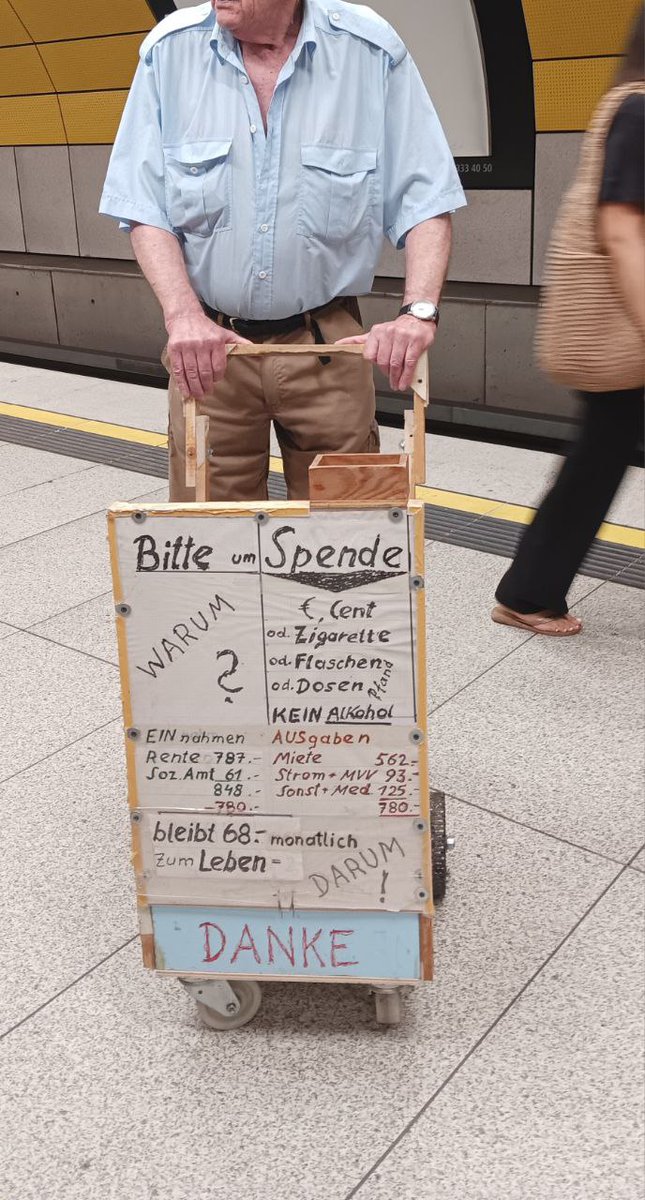 333 40 50
Bitte um Spende
WARUM
?
€, Cent
od. Zigarette
od. Flaschen
od. Dosen
Pfand
KEIN Alkohol
EINnahmen
Rente 787.-
Soz. Amt 61.-
848.-
-780.-
AUSgaben
Miete 562.-
Strom + MVV 93.-
Sonst + Med 125.-
780.-
bleibt 68.- monatlich
zum Leben-
DARUM
!
DANKE